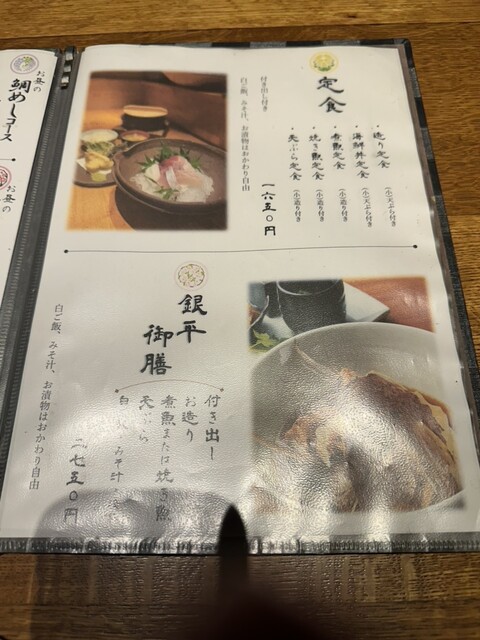 定食
・造り定食 （小）天ぷら付き
・海鮮丼定食 （小）天ぷら付き
・煮魚定食 （小）造り付き
・焼き魚定食 （小）造り付き
・天ぷら定食 （小）造り付き
一六五〇円
付き出し付き
白ご飯、みそ汁、お漬物はおかわり自由
銀平
御膳
付き出し
お造り
煮魚または焼き魚
天ぷら
みそ汁
二七五〇円
白ご飯、みそ汁、お漬物はおかわり自由
お昼の
鯛めしコース
お昼の